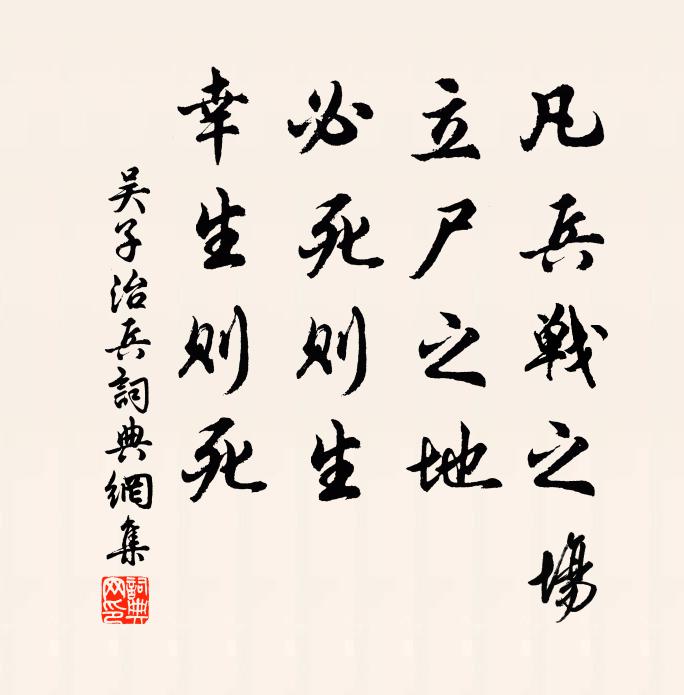 凡兵戰之場
立尸之地
必死則生
幸生則死
吴子治兵詞典網集
詞典網印